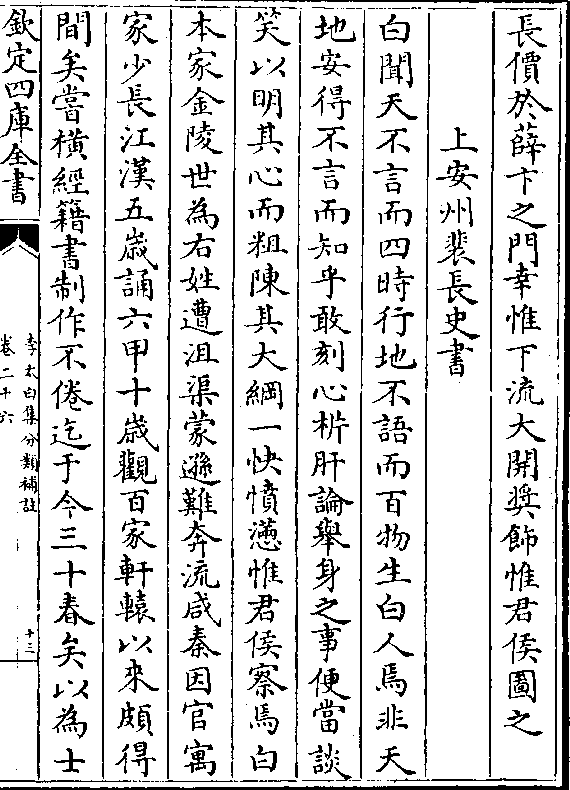 長價於薛卞之門幸惟下流大開奬飾惟君侯圖之
上安州裴長史書
白聞天不言而四時行地不語而百物生白人焉非天
地安得不言而知乎敢刻心析肝論舉身之事便當談
笑以明其心而粗陳其大綱一快憤懣惟君侯察焉白
本家金陵世為右姓遭沮渠蒙遜難奔流咸秦因官寓
家少長江漢五歳誦六甲十歳觀百家軒轅以來頗得
聞矣嘗橫經籍書制作不倦迄于今三十春矣以為士
欽定四庫全書
李太白集分類補註
卷二十六
十三